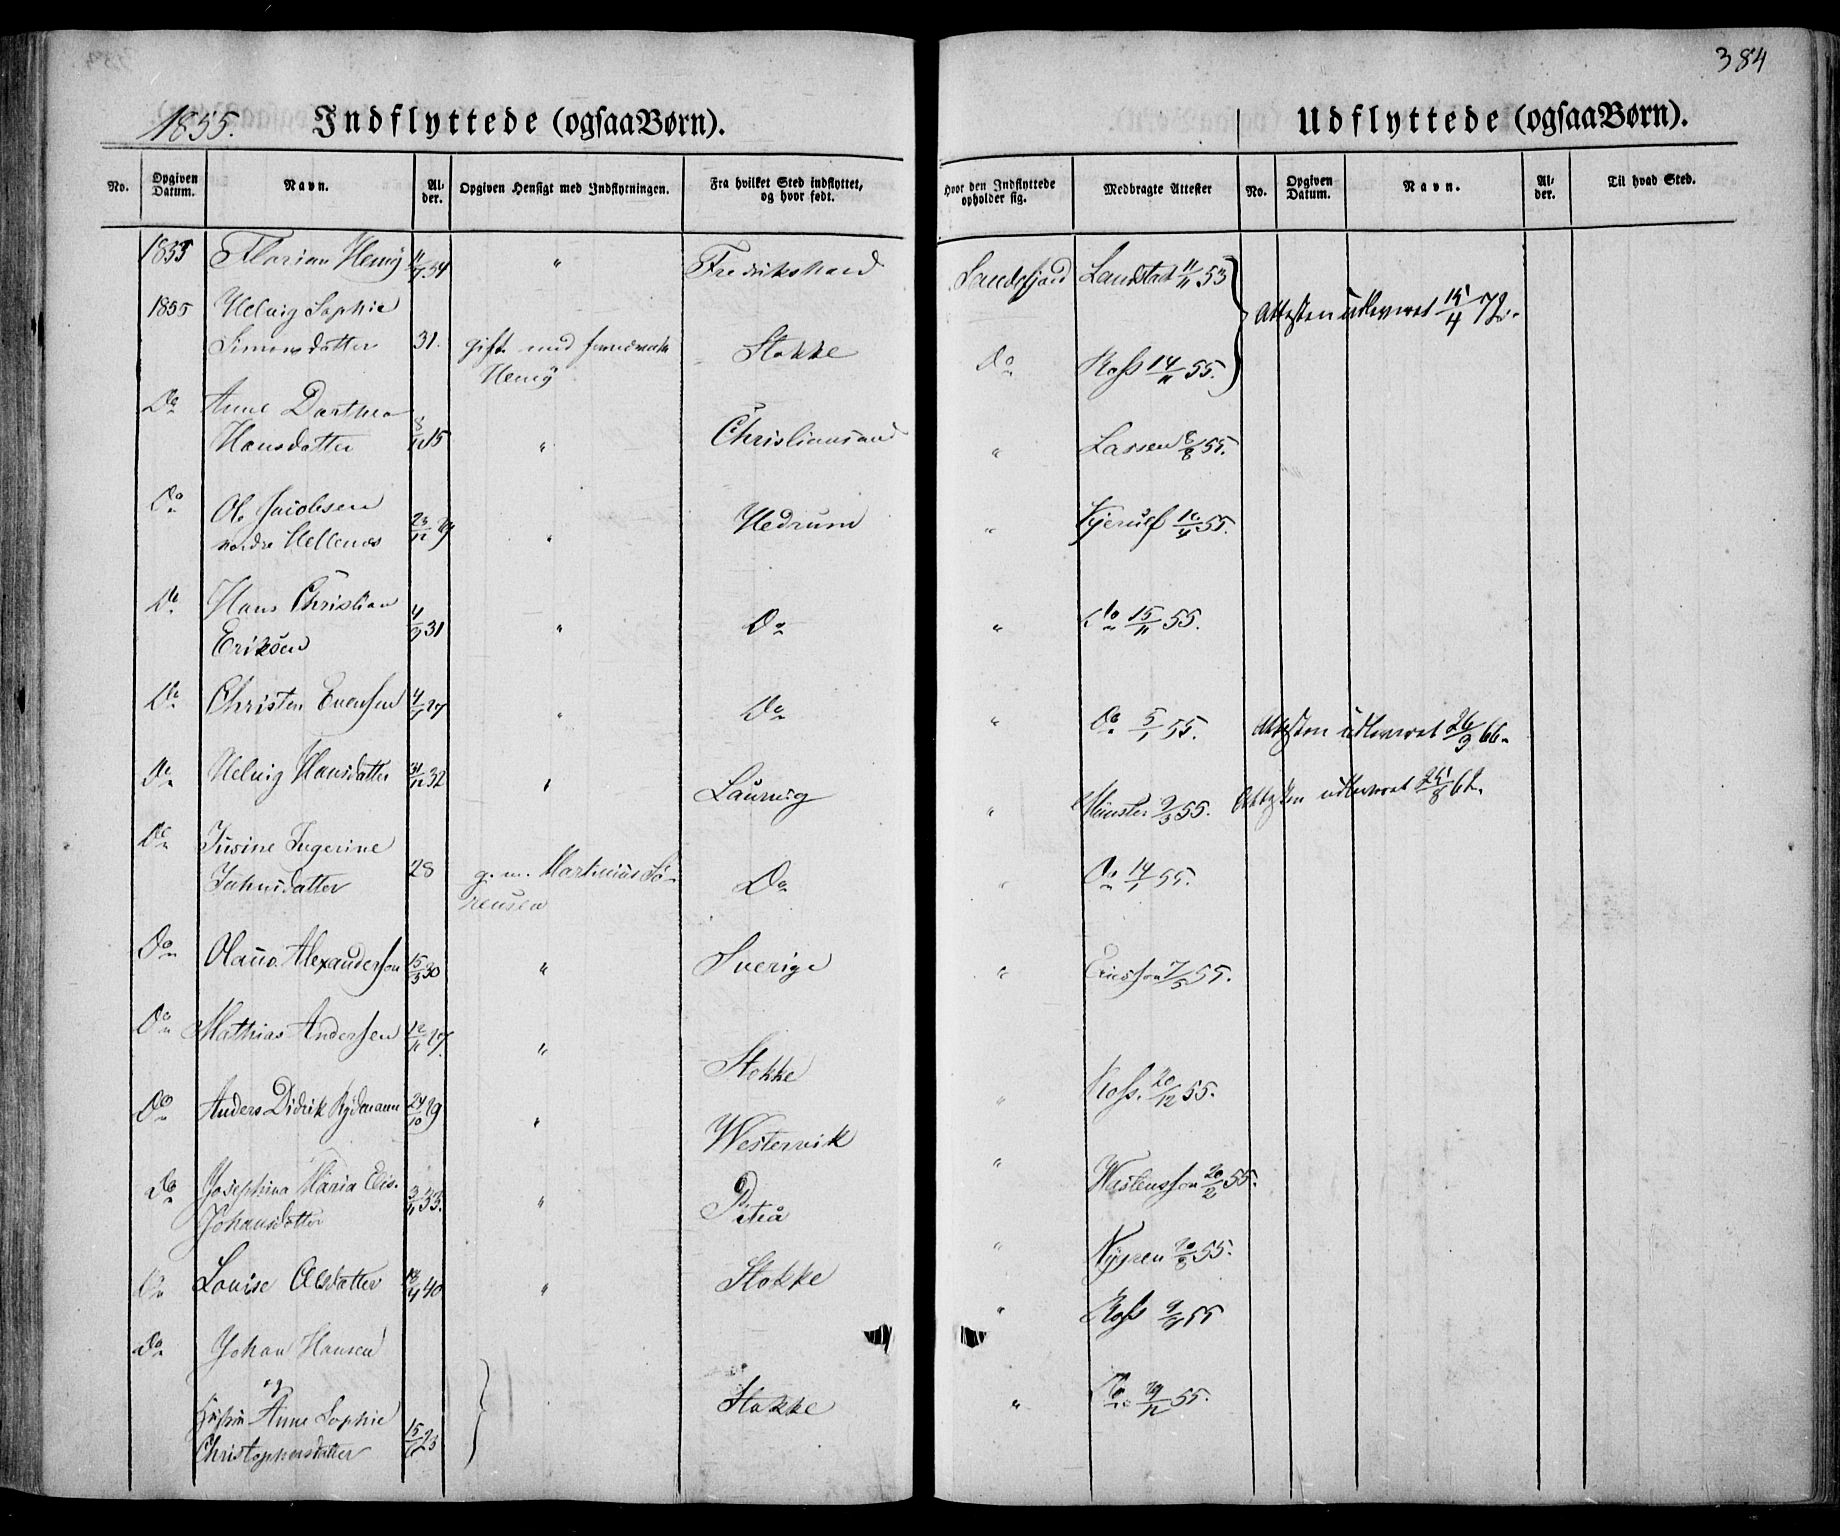 384
1855. Indflyttede (ogsaa Børn).
Udflyttede (ogsaa Børn).
No. Opgiven Datum. Navn. Al-der. Opgiven Hensigt med Indflytningen. Fra hvilket Sted indflyttet, og hvor født. Hvor den Indflyttede opholder sig. Medbragte Attester No. Opgiven Datum. Navn. Al-der. Til hvad Sted.
1855 Florian Henij 11/9 34 " Fredrikshald Sandefjord Landstad 11/11 53
1855 Helvig Sophie
Simonsdatter 31. gift med Stokke Do Ross 14/11 55. Attesten udleveret 15/4 72.
Henij
Do Anne Dorthea
Hansdatter 15 " Christiansand " Lassen 6/8 55.
Do Ole Jacobsen
nordre Hellenæs 23/12 29 " Hedrum " Kjerulf 10/4 55.
Do Hans Christian
Eriksen 4/9 31 " Do " Do 15/11 55.
Do Christen Evensen 4/1 27 " Do " Do 5/1 55. Attesten udleveret 26/9 66.
Do Helvig Hansdatter 31/12 32 " Laurvig " Münster 9/3 55. Attesten udleveret 25/8 62.
Do Ingerine
Jahnsdatter 28 g. m. Martinius Sø-
rensen Do " Do 14/1 55.
Do Olaus Alexandersen 15/3 30 " Sverige " Ericsson 7/5 55.
Do Mathias Andersen 12/11 27. " Stokke " Ross. 20/12 55.
Do Anders Didrik Rydmann 24/10 29 " Westervik " Wastensson 20/2 55.
Do Josephina Maria Elis.
Johansdatter 3/11 33. " Piteå " Nygren 20/8 55.
Do Louise Olsdatter 18/4 40 " Stokke " Ross 9/4 55
Do Johan Hansen
og
Hustru Anne Sophie
Christophersdatter 23 Stokke " Do 29/12 55.